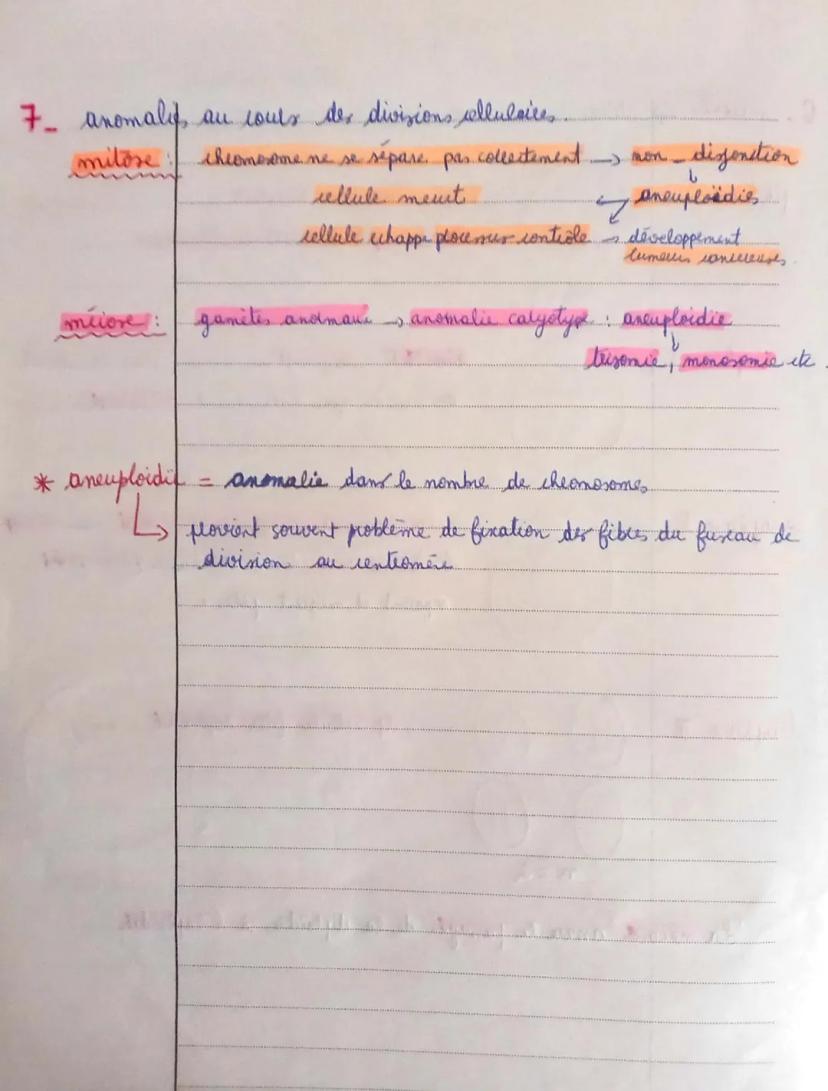 7- anomalies au cours des divisions cellulaires.
mitose : chromosome ne se sépare pas correctement → non-disjonction
↓
cellule meurt ← aneuploïdies
cellule echappe processur contrôle → développement
tumeurs cancereuses
méiose : gamètes anormaux → anomalie caryotype : aneuploidie
↓
trisomie, monosomie etc.
* aneuploidie = anomalie dans le nombre de chromosomes
↳ provient souvent problème de fixation des fibres du fuseau de
division au centromère